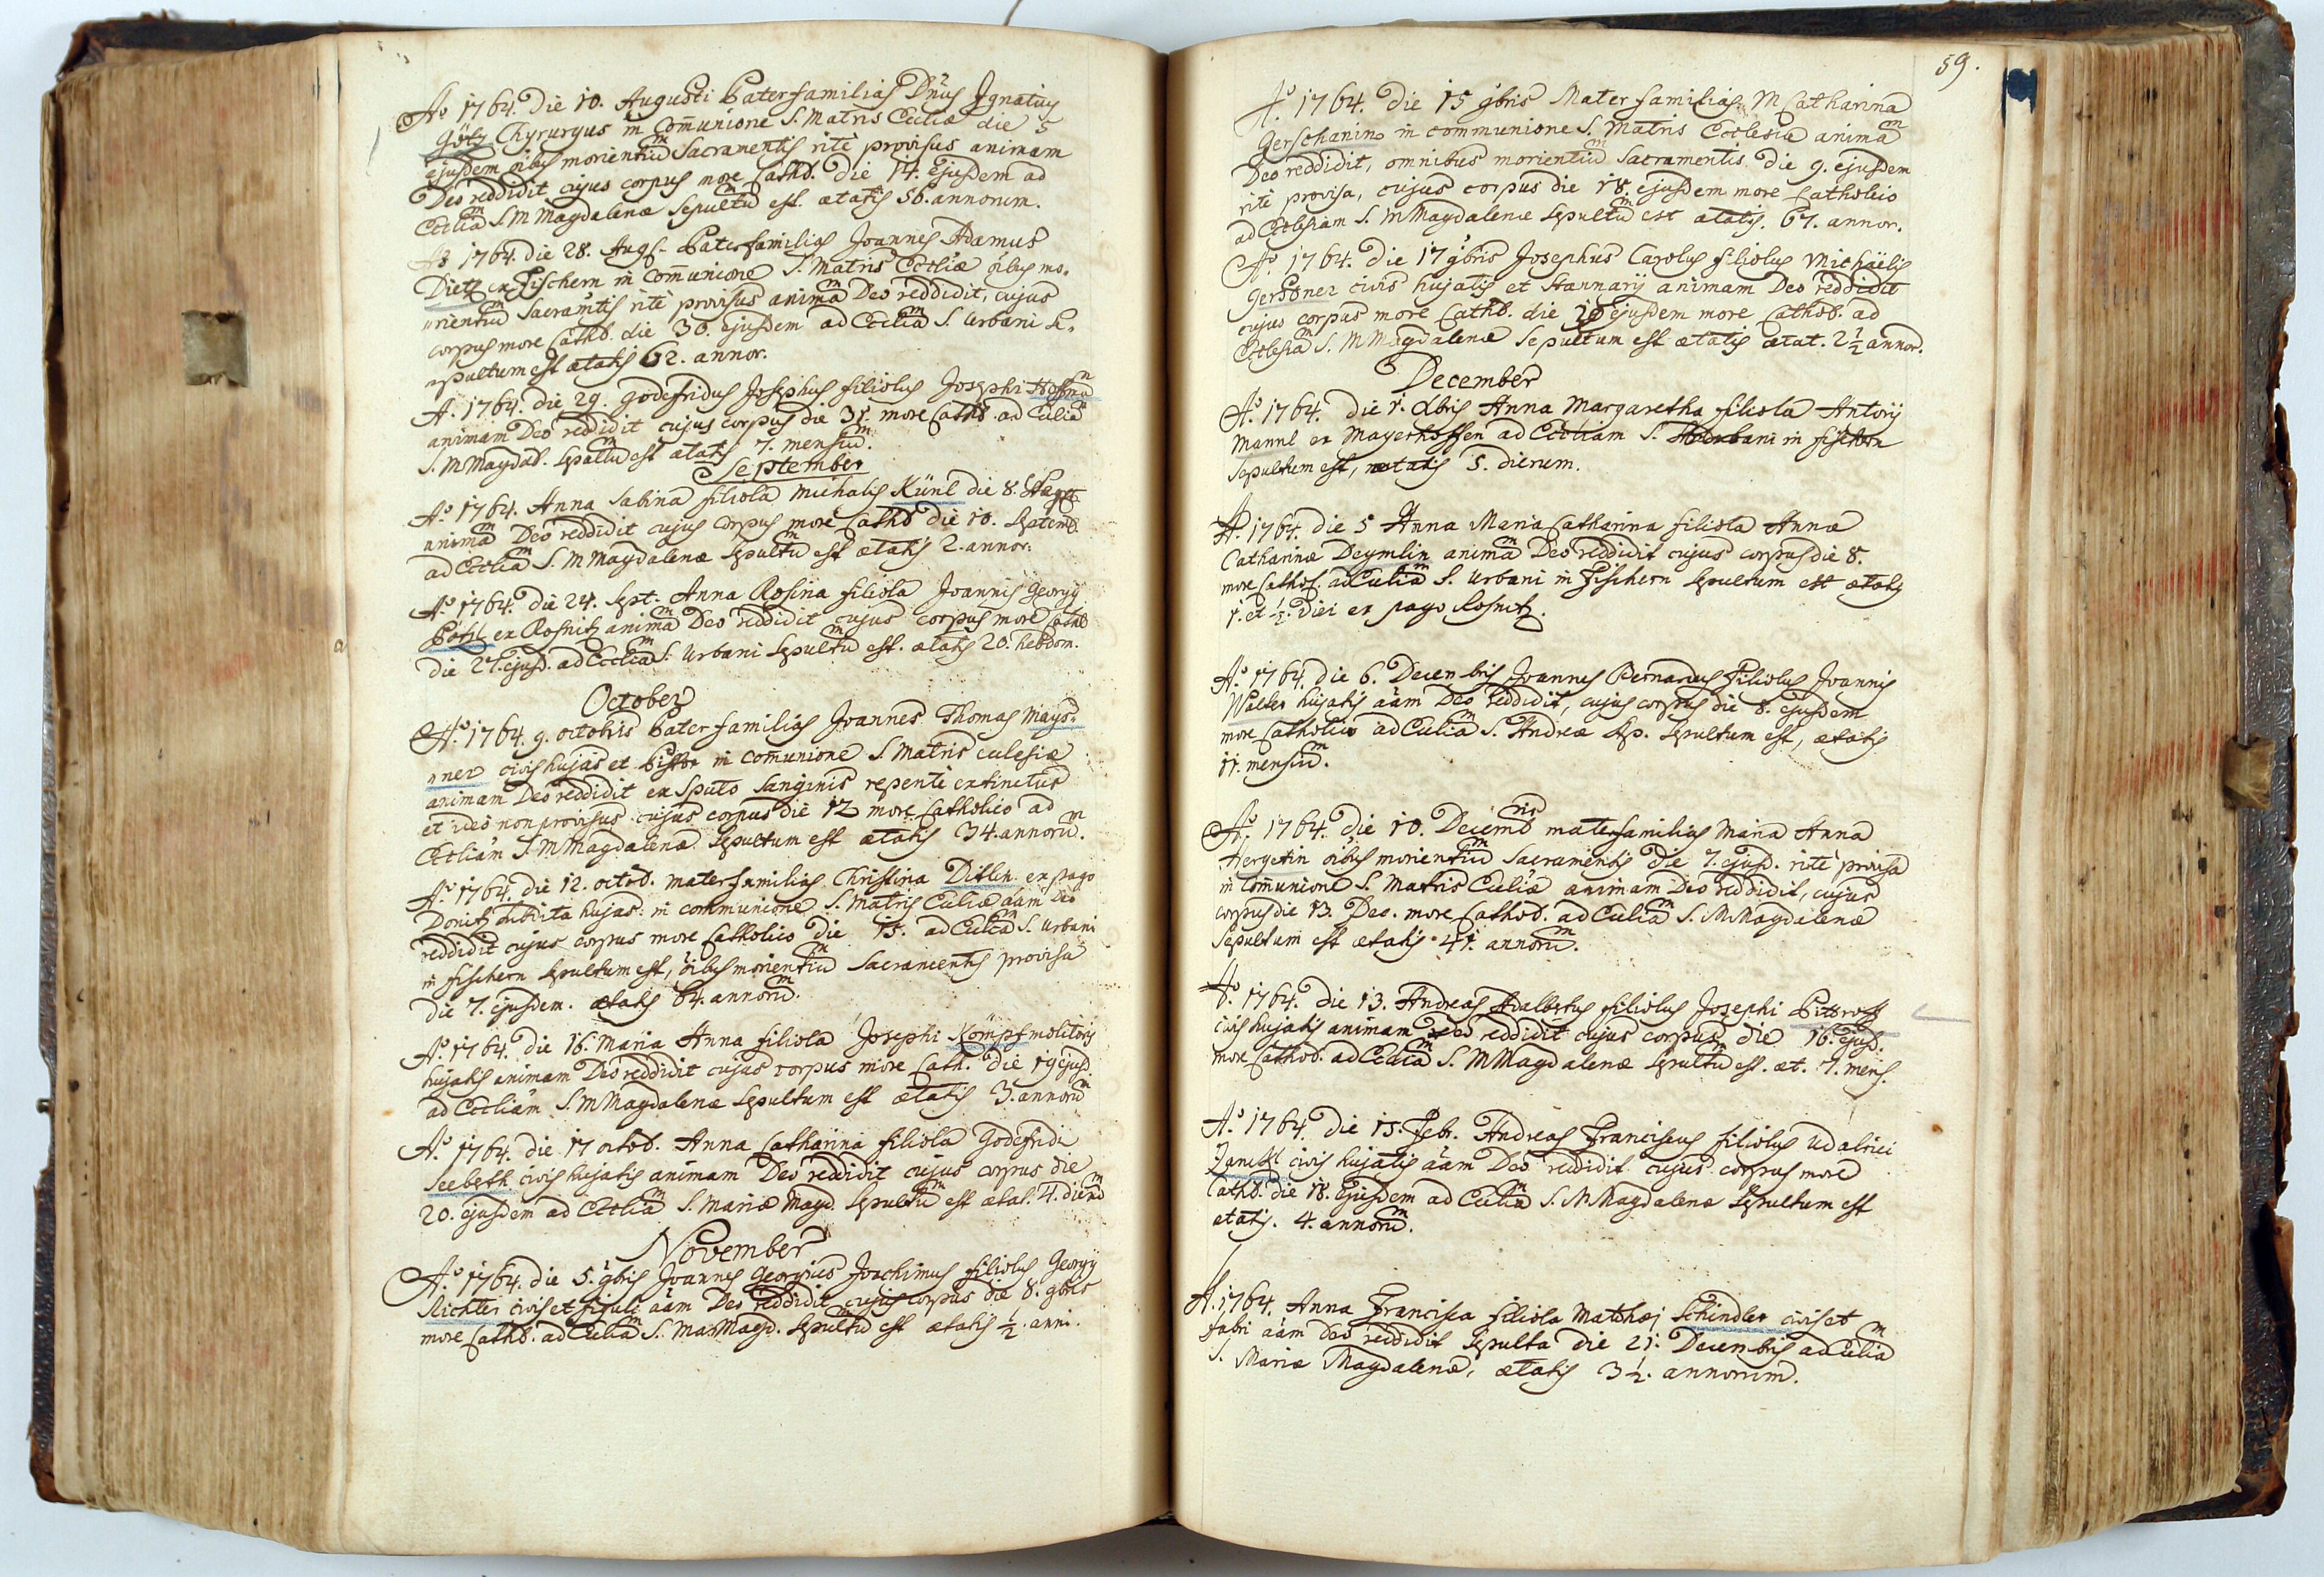 Aº 1764. Die 10. Augusti Paterfamilias Dnus Ignatius
Götz Chyrurgus in Com̄unione S. Matris Eccliæ die 5
ejusdem oibus morientiūm Sacramentis ritè provisus animam
Deo reddidit cujus corpus more Cathol. die 14. ejusdem ad
Eccliam S. M Magdalenæ Sepultūm est. ætatis 56. annorum.
Aº 1764. die 28. Aug. Paterfamilias Joannes Adamus
Dietz ex Fischern in Com̄unione S. Matris Eccliæ oibus mo-
rientiūm Sacramtis ritè provisus animam Deo reddidit, cujus
corpus more Cathol. die 30. ejusdem ad Eccliam S. Urbani Se-
pultum est ætatis 62. annor.
A. 1764. die 29. Godefridus Josephus filiolus Josephi
animam Deo reddidit cujus corpus die 31. more Cathol. ad Eccliam
S. M Magdal. Sepultūm est ætatis 7. mensiūm.
September
Aº 1764. Anna Sabina filiola Michalis Künl die 8.
animam Deo reddidit cujus corpus more Cathol die 10. Septemb.
ad Eccliam S. M Magdalenæ Sepultūm est ætatis 2. annor.
Aº 1764. die 24. Sept. Anna Rosina filiola Joannis Georgÿ
Pöhl ex Rosnitz animam Deo reddidit cujus corpus more Cathol
die 27. ejusd. ad Eccliam S. Urbani Sepultūm est. ætatis 20. hebdom.
October
Aº 1764. 9. octobris Pater familias Joannes Thomas Mays-
ner civis hujas et Pistor in com̄unione S. Matris ecclesiæ
animam Deo reddidit ex Sputo Sanginis repentè extinctus
et ideo non provisus cujus corpus die 12 more Catholico ad
Eccliam S. M Magdalenæ Sepultum est ætatis 34. annorūm.
Aº 1764. die 12. octob. mater familias Christina Ditlin ex pago
Donitz subdita hujas: in communione S. Matris Eccliæ āam Deo
reddidit cujus corpus more Catholico die 15. ad Eccliam S. Urbani
in fischern Sepultum est, oibus morientiūm Sacramentis provisa
die 7. ejusdem. ætatis 64. annorūm.
Aº 1764. die 16. Maria Anna filiola Josephi Kömpf molitoris
hujatis animam Deo reddidit cujus corpus more Cath. die 19 ejusd.
ad Eccliam S. M Magdalenæ Sepultum est ætatis 3. annorūm
Aº 1764. die 17 octob. Anna Catharina filiola Godefridi
Seeberth civis hujatis animam Deo reddidit cujus corpus die
20. ejusdem ad Eccliam S. Mariæ Magd. Sepultūm est ætat. 4. dierūm
November
Aº 1764. die 5. 9bris Joannes Georgius Joachimus filiolus Georgÿ
Richter civis et figuli āam Deo reddidit cujus corpus die 8. 9bris
more Cathol. ad Eccliam S. Mar Magd. Sepultūm est ætatis ½. anni.
59.
Aº 1764. die 15 9bris Mater familias M Catharina
Gerschanino in communione S. Matris Ecclesiæ animam
Deo reddidit, omnibus morientiūm Sacramentis die 9. ejusdem
ritè provisa, cujus corpus die 18. ejusdem more Catholico
ad Ecclesiam S. M Magdalenæ Sepultūm est ætatis. 67. annor.
Aº 1764. die 17 9bris Josephus Carolus filiolus Michaëlis
Gerstner civis hujatis et Stannarÿ animam Deo reddidit
cujus corpus more Cathol. die ejusdem more Cathol. ad
Ecclesiam S. M Magdalenæ Sepultum est ætatis ætat. 2 ½ annor.
December
Aº 1764. die 1. Xbris Anna Margaretha filiola Antonÿ
Mannl ex Mayerhoffen ad Eccliam S. Urbani in fischern
Sepultum est, ætatis 5. dierum.
Aº 1764. die 5 Anna Maria Catharina filiola Annæ
Catharinæ Deymlin animam Deo reddidit cujus corpus die 8.
more Cathol. ad Eccliam S. Urbani in Fischern Sepultum est ætatis
1. et ½. Diei ex pago Rosnitz.
Aº 1764. die 6. Decembris Joannes Bernardus Filiolus Joannis
Walter hujatis āam Deo reddidit, cujus corpus die 8. ejusdem
more Catholico ad Eccliam S. Andreæ Ap. Sepultum est, ætatis
11. mensiūm.
Aº 1764. die 10. Decembris materfamilias Maria Anna
Hergetin oibus morientiūm Sacramentis die 7. ejusd. ritè provisa
in Com̄unione S. Matris Eccliæ animam Deo reddidit, cujus
corpus die 13. Dec. more Cathol. ad Eccliam S. M Magdalenæ
Sepultum est ætatis 41. annorūm.
Aº 1764. die 13. Andreas Adalbertus filiolus Josephi Pittroff
civis hujatis animam Deo reddidit cujus corpus die 16. ejusd.
more Cathol. ad Eccliam S. M Magdalenæ Sepultūm est. æt. 7. mens.
Aº 1764. die 15. Xbr. Andreas Franciscus filiolus Udalrici
civis hujatis āam Deo reddidit cujus corpus more
Cathol. die 18. Ejusdem ad Eccliam S. M Magdalenæ Sepultum est
ætatis. 4. annorūm.
A. 1764. Anna Francisca filiola Mathæi Schindler civis et
fabri āam Deo reddidit Sepulta die 21. Decembris ad Eccliam
S. Mariæ Magdalenæ, ætatis 3 ½. annorum.